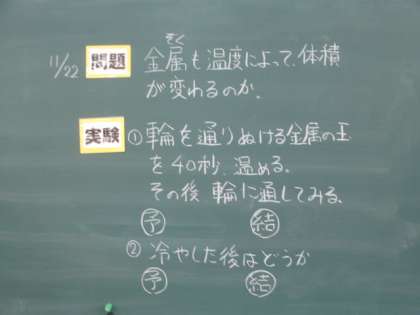 11/22 問題 金属も温度によって、体積
ぞく
が変わるのか。
実験 ①輪を通りぬける金属の玉
を40秒、温める。
その後、輪に通してみる。
予 結
②冷やした後はどうか
予 結